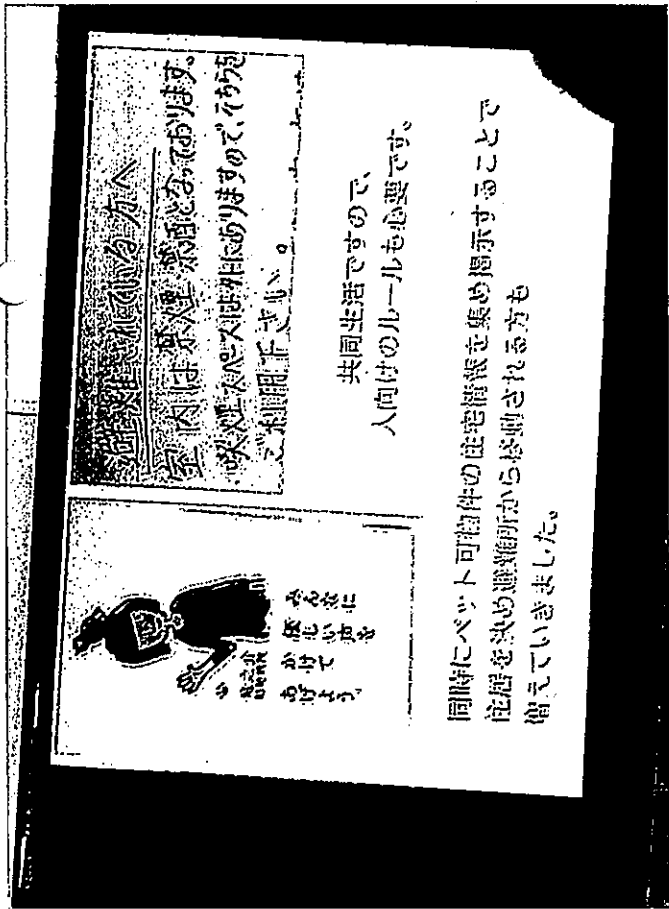 避難されている方へ
室内は禁煙・禁酒となっております。
喫煙スペースは外にありますので、そちらを
ご利用下さい。
みんなに
優しい声を
かけて
あげよう。
共同生活ですので、
人向けのルールも必要です。
同時にペット可物件の住宅情報を集め掲示することで
住居を決め避難所から移動される方も
増えていきました。